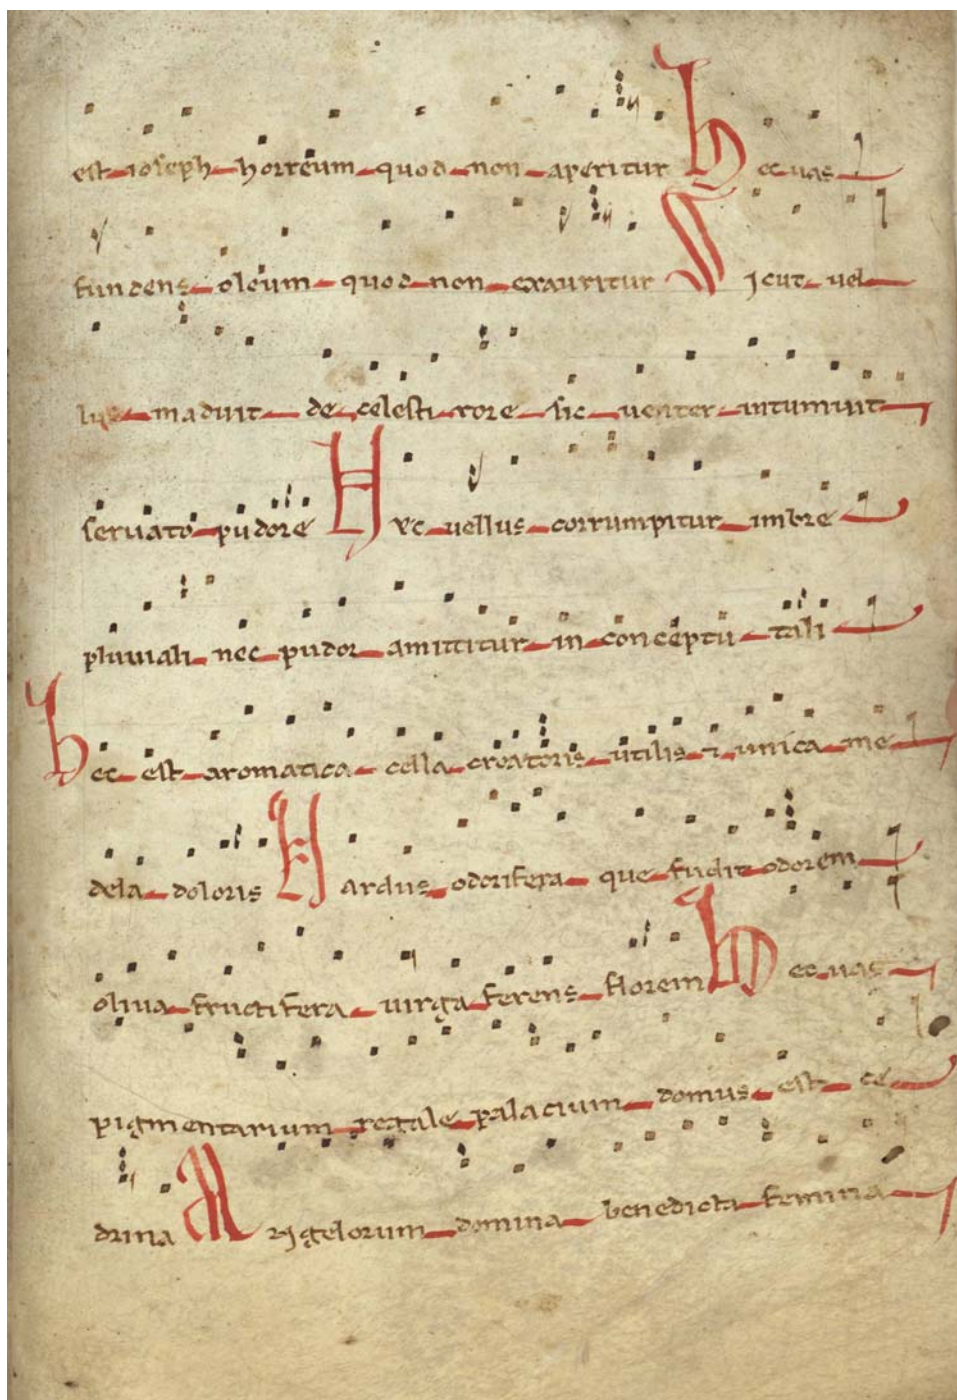 est ioseph horreum quod non aperitur Hec uas
fundens oleum quod non exauritur Sicut uel
lus maduit de celesti rore sic uenter intumuit
seruato pudore Nec uellus corrumpitur imbre
pluuiali nec pudor amittitur in conceptu tali
Hec est aromatica cella creatoris utilis ⁊ unica me
dela doloris Nardus odorifera que fudit odorem
oliua fructifera uirga ferens florem Hec uas
pigmentarium regale palacium domus est ce
drina Angelorum domina benedicta femina